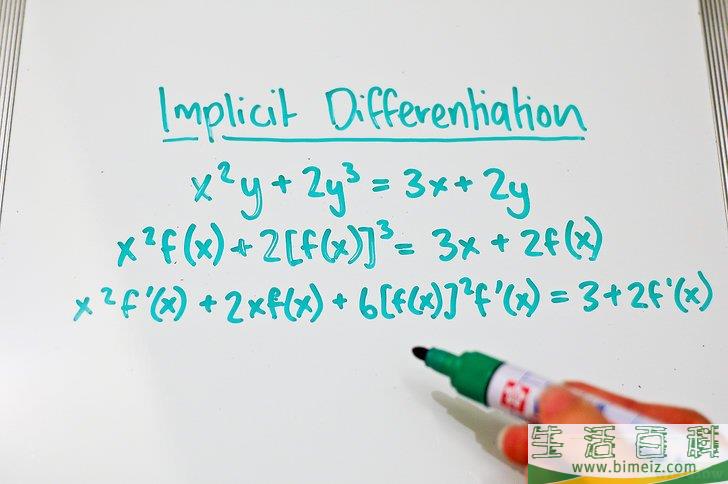 Implicit Differentiation
x²y + 2y³ = 3x + 2y
x²f(x) + 2[f(x)]³ = 3x + 2f(x)
x²f'(x) + 2xf(x) + 6[f(x)]²f'(x) = 3 + 2f'(x)
生活百科
www.bimeiz.com